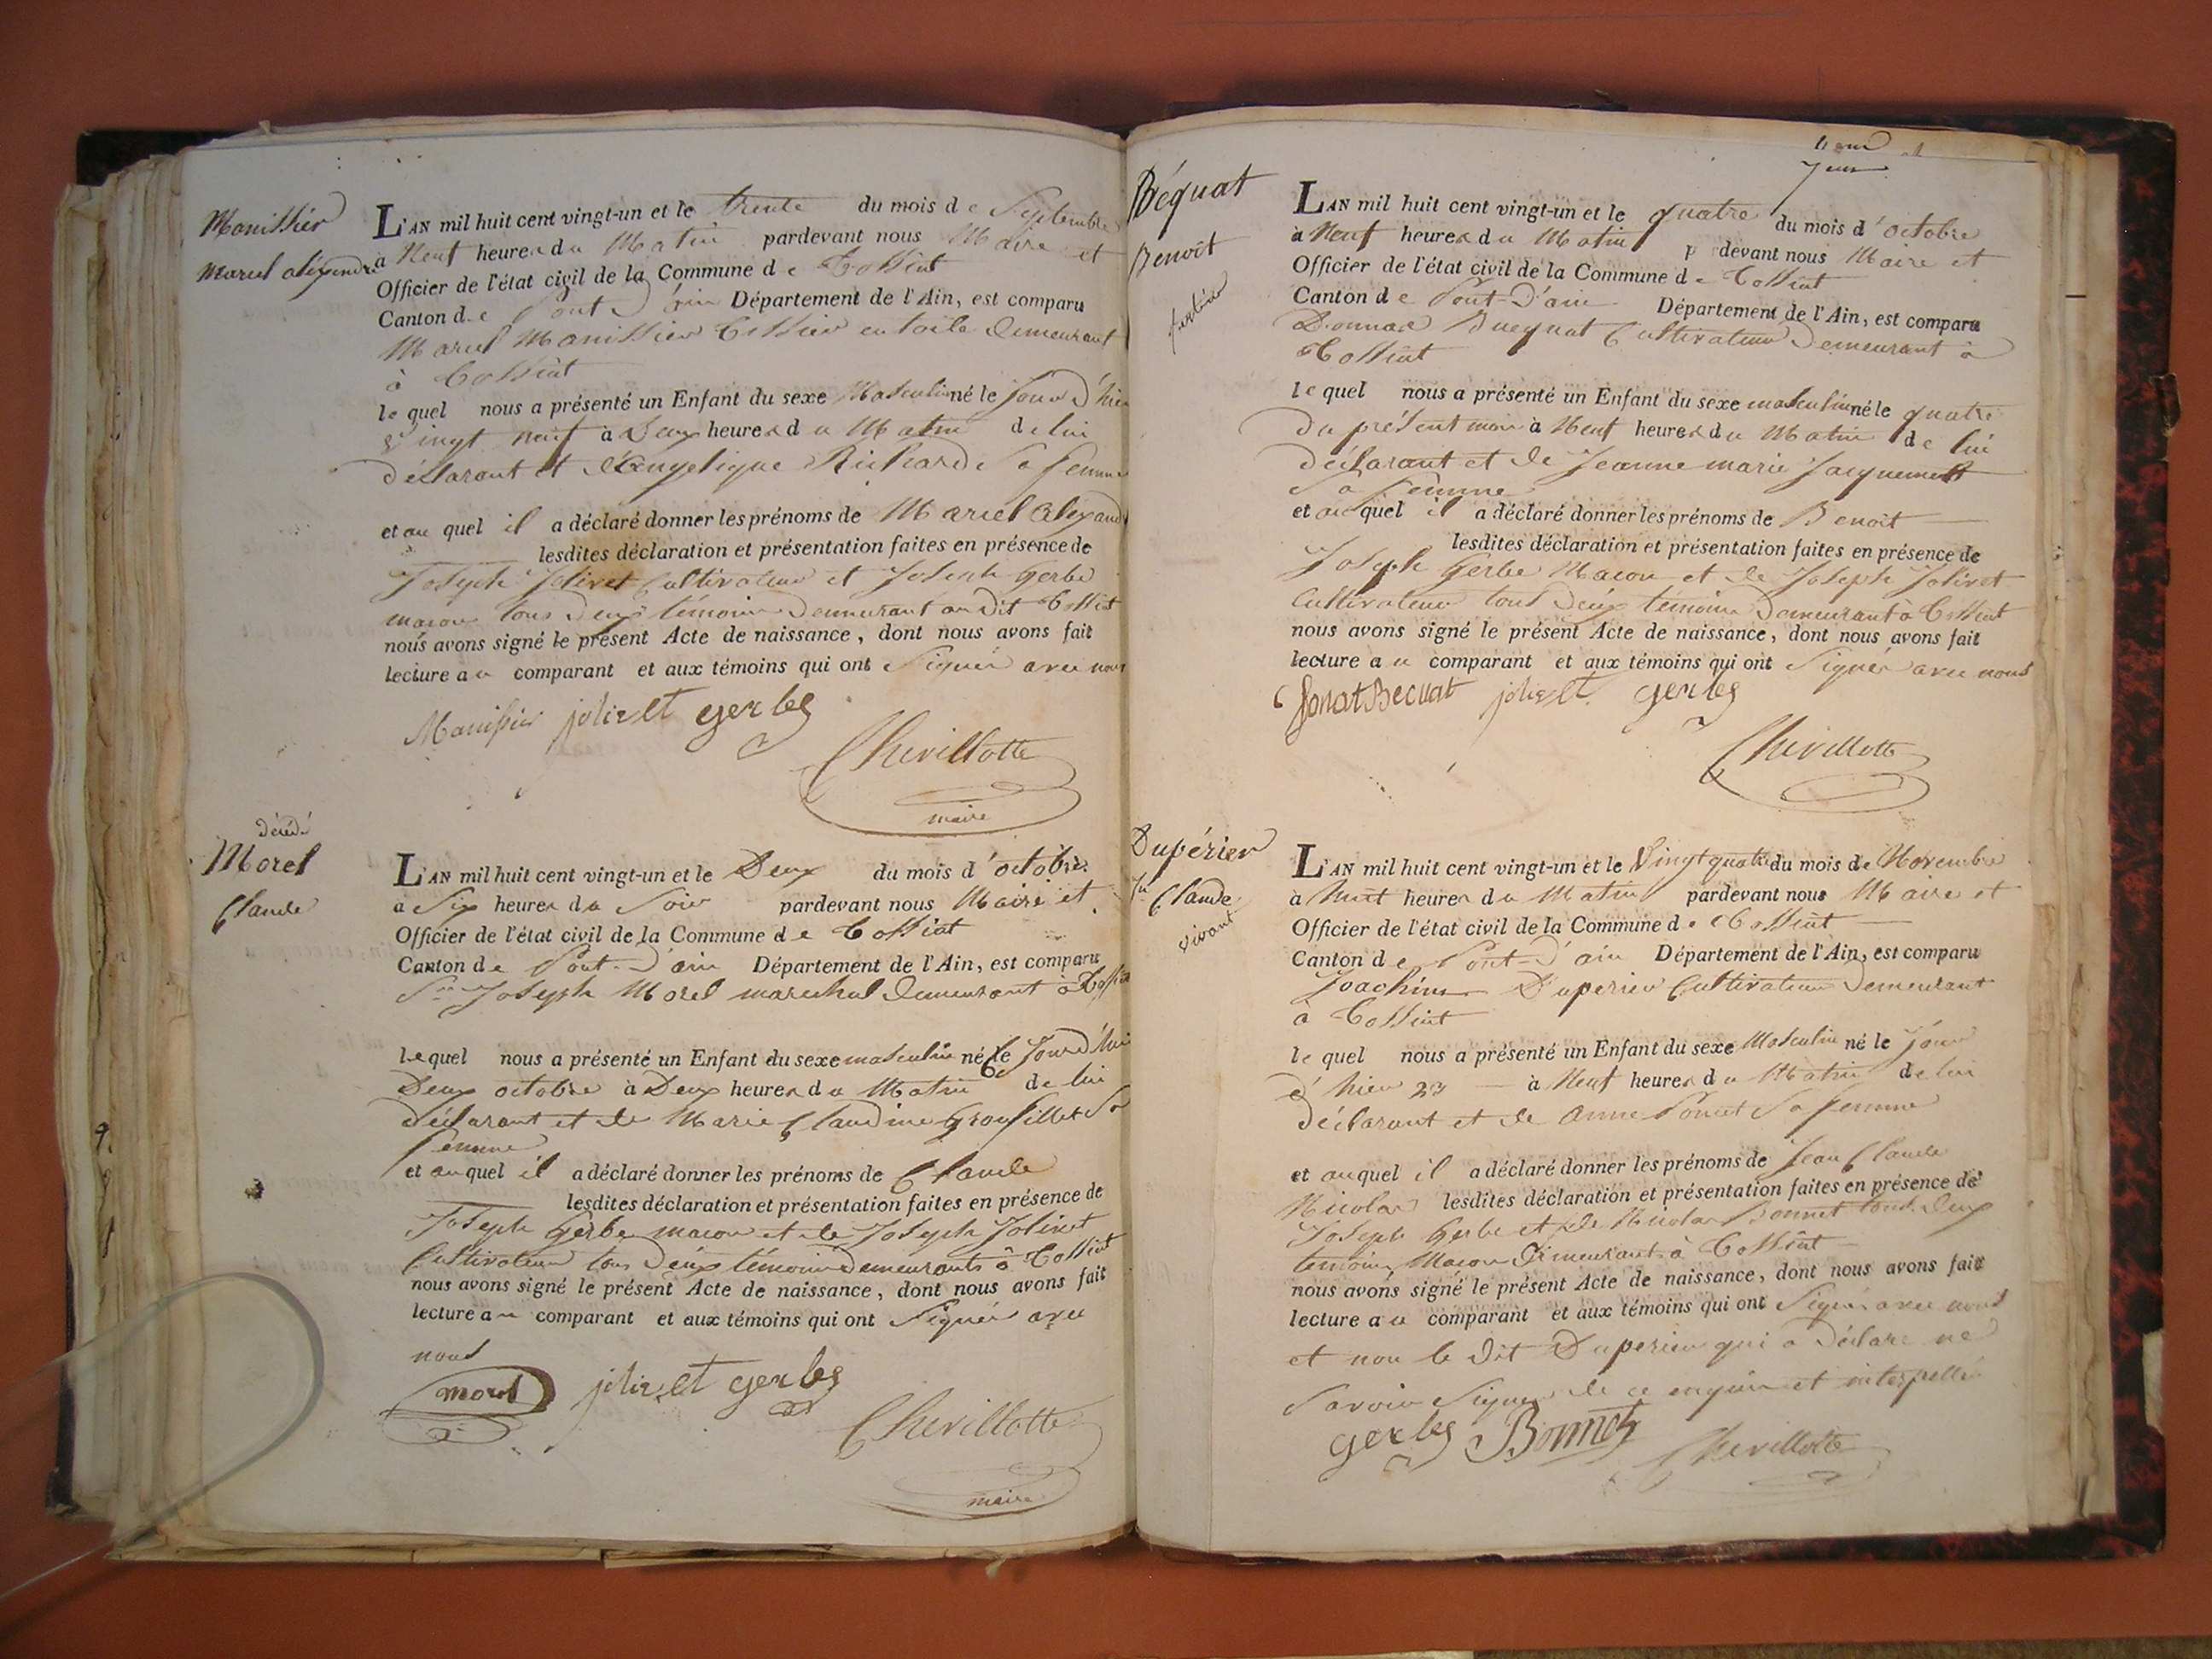 Manissier
Marcel alexandre
L'AN mil huit cent vingt-un et le trente du mois de Septembre
à Neuf heures du Matin pardevant nous Maire et
Officier de l'état civil de la Commune de Tossiat
Canton de Pont D'ain Département de l'Ain, est comparu
Marcel Manissier Tissier en toile Demeurant
à Tossiat
lequel nous a présenté un Enfant du sexe Masculin né le Jour d'hier
Vingt neuf à Deux heures du Matin de lui
déclarant et d'Angelique Richard Sa femme
et au quel il a déclaré donner les prénoms de Marcel Alexandre
lesdites déclaration et présentation faites en présence de
Joseph Jolivet Cultivateur et Joseph Gerbe
macon tous Deux témoins Demeurant au Dit Tossiat
nous avons signé le présent Acte de naissance, dont nous avons fait
lecture au comparant et aux témoins qui ont Signés avec nous
Manissier jolivet gerbe
Chevillotte
maire
décédé
Morel
Claude
L'AN mil huit cent vingt-un et le Deux du mois d'octobre
à Six heures du Soir pardevant nous Maire et
Officier de l'état civil de la Commune de Tossiat
Canton de Pont-D'ain Département de l'Ain, est comparu
Joseph Morel marechal demeurant à Tossiat
lequel nous a présenté un Enfant du sexe masculin né le Jourd'hui
Deux octobre à Deux heures du Matin de lui
déclarant et de Marie Claudine Sa
femme
et auquel il a déclaré donner les prénoms de Claude
lesdites déclaration et présentation faites en présence de
Joseph Gerbe macon et de Joseph Jolivet
Cultivateur tous Deux témoins demeurants à Tossiat
nous avons signé le présent Acte de naissance, dont nous avons fait
lecture au comparant et aux témoins qui ont Signés avec
nous
morel jolivet gerbe
Chevillotte
maire
Béquat
Benoit
L'AN mil huit cent vingt-un et le quatre du mois d'octobre
à Neuf heures du Matin pardevant nous Maire et
Officier de l'état civil de la Commune de Tossiat
Canton de Pont-D'ain Département de l'Ain, est comparu
Bequat Cultivateur Demeurant à
Tossiat
lequel nous a présenté un Enfant du sexe masculin né le quatre
du présent mois à Neuf heures du Matin de lui
déclarant et de Jeanne marie Jacquemet
Sa femme
et au quel il a déclaré donner les prénoms de Benoit
lesdites déclaration et présentation faites en présence de
Joseph Gerbe Macon et de Joseph Jolivet
Cultivateur tous Deux témoins Demeurant à Tossiat
nous avons signé le présent Acte de naissance, dont nous avons fait
lecture au comparant et aux témoins qui ont Signés avec nous
Becuat jolivet gerbe
Chevillotte
Dupérier
Jn Claude
vivant
L'AN mil huit cent vingt-un et le Vingt quatre du mois de Novembre
à huit heures du Matin pardevant nous Maire et
Officier de l'état civil de la Commune de Tossiat
Canton de Pont-D'ain Département de l'Ain, est comparu
Joachim Duperier Cultivateur Demeurant
à Tossiat
lequel nous a présenté un Enfant du sexe Masculin né le jour
d'hier 23 à Neuf heures du Matin de lui
déclarant et de Anne Poncet Sa femme
et auquel il a déclaré donner les prénoms de Jean Claude
Nicolas lesdites déclaration et présentation faites en présence de
Joseph Gerbe et de Nicolas Bonnet tous deux
temoins Macon Demeurants à Tossiat
nous avons signé le présent Acte de naissance, dont nous avons fait
lecture au comparant et aux témoins qui ont Signés avec nous
et non le Dit Duperier qui a déclaré ne
Savoir Signer de ce enquis et interpellé
gerbe Bonnet Chevillotte